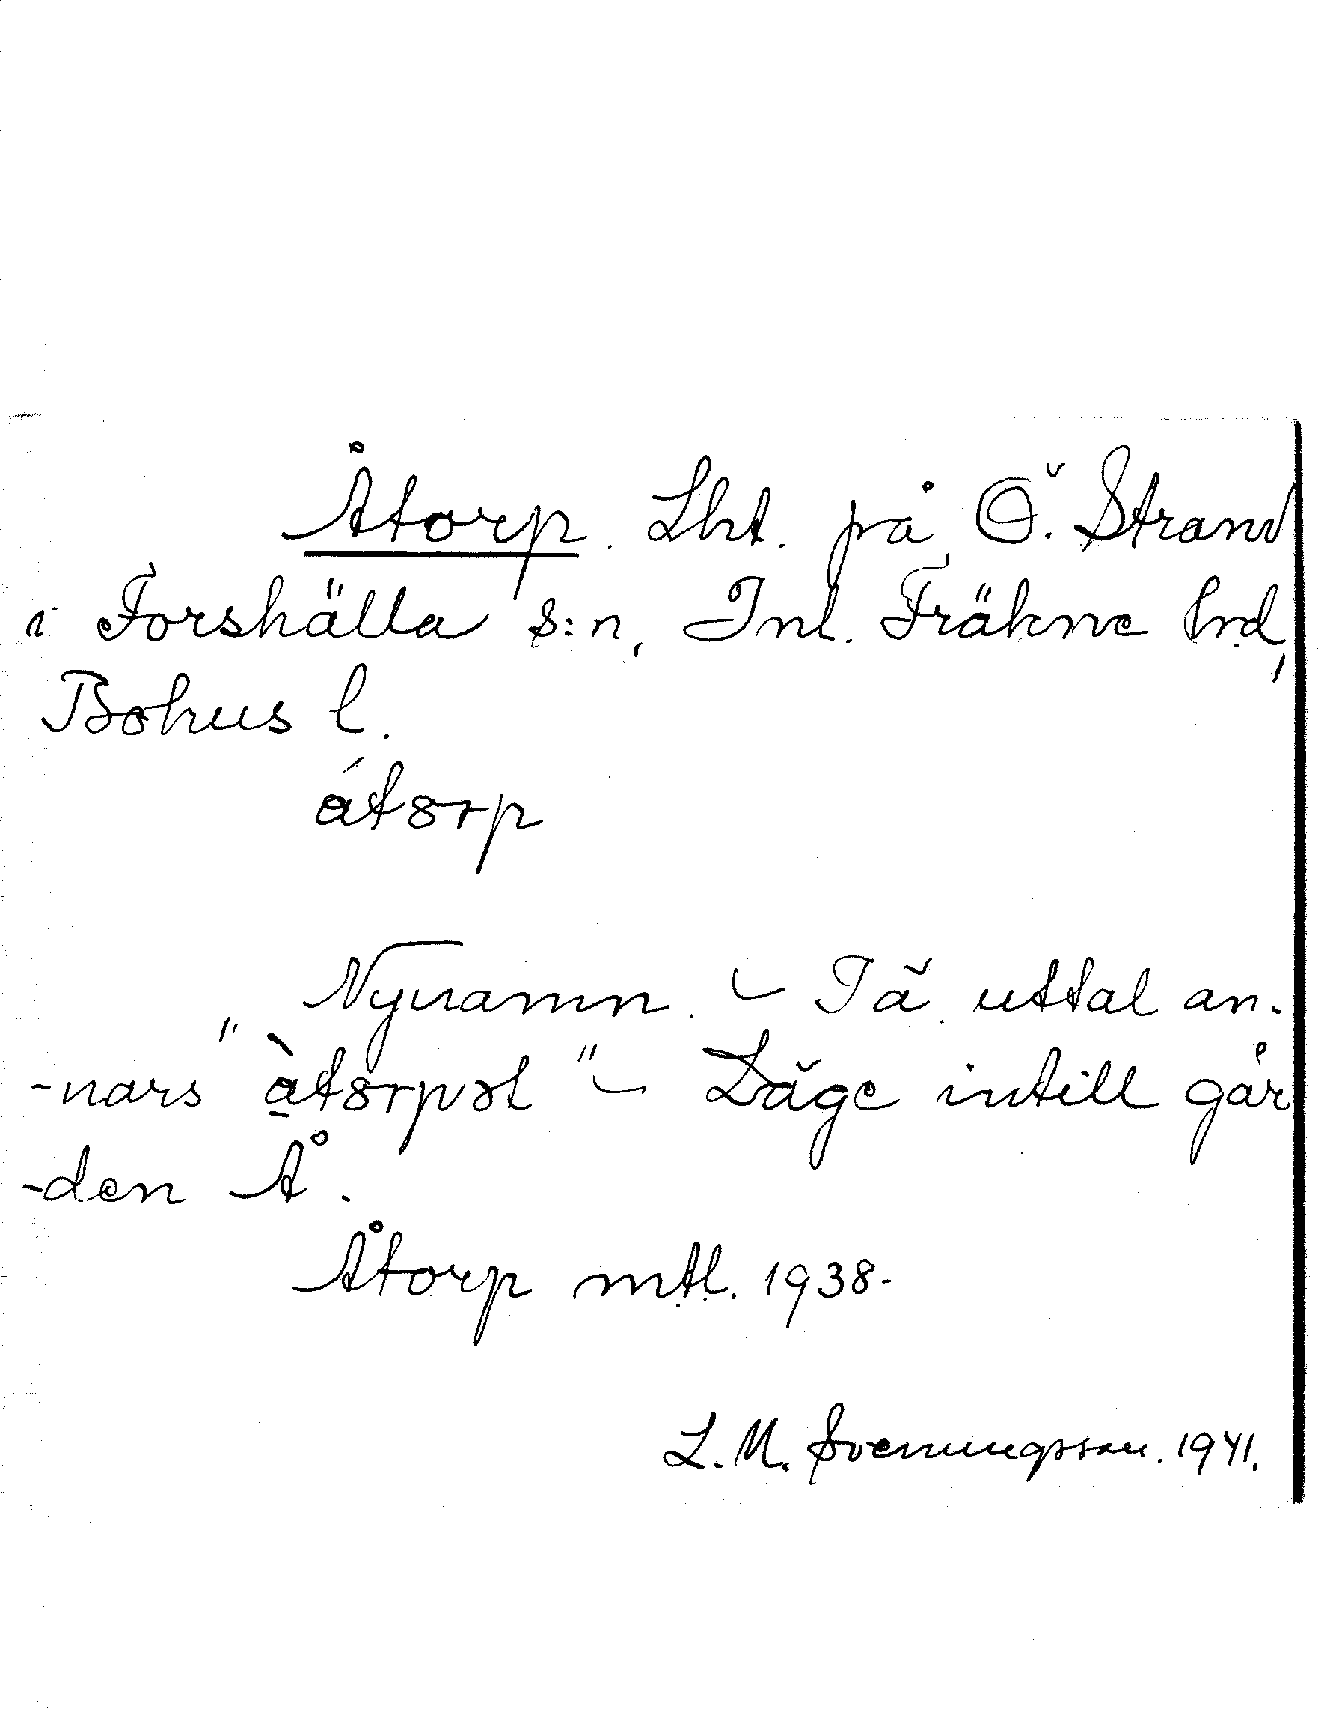 Åtorp. Lht. på Ö. Strand
i Forshälla s:n, Inl. Fräkne hd,
Bohus l.
átorp
Nynamn. – Så uttal an-
-nars "àtorpət" – Läge intill går
-den Å.
Åtorp mtl. 1938-
L. M. Svenungsson. 1941.